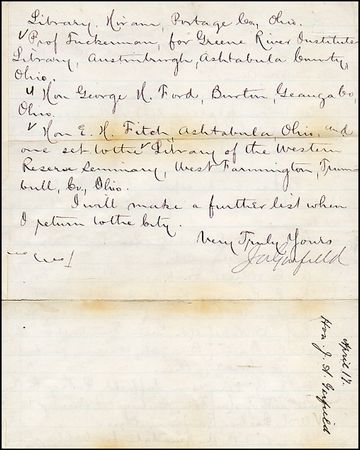 Library, Hiram, Portage Co, Ohio.
√ Prof Tuckerman, for Greene River Institute
Library, Austinburgh, Ashtabula County,
Ohio.
√ Hon George H. Ford, Burton, Geauga Co
Ohio.
√ Hon E. H. Fitch, Ashtabula, Ohio, and
one set to the √ Library of the Western
Reserve Seminary, West Farmington, Trum
bull, Co, Ohio.
I will make a further list when
I return to the City.
Very Truly Yours
J A Garfield
April 17.
Hon. J. A. Garfield